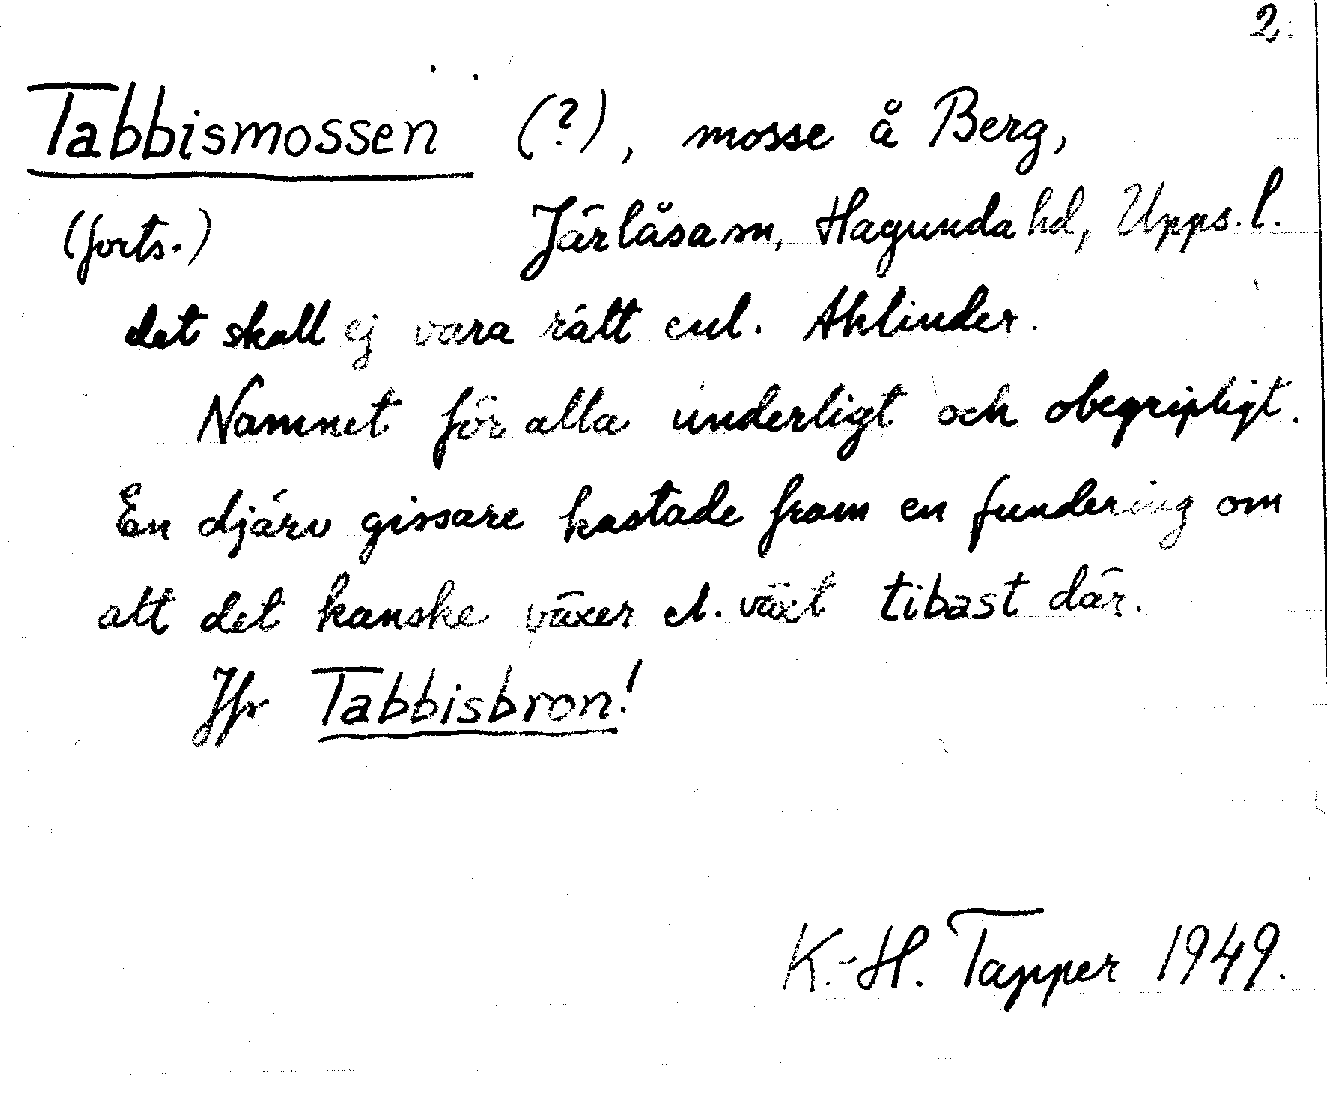 2.
Tabbismossen (?), mosse å Berg,
(forts.) Järlåsa sn, Hagunda hd, Upps. l.
det skall ej vara rätt enl. Ahlinder.
Namnet för alla underligt och obegripligt.
En djärv gissare kastade fram en fundering om
att det kanske växer el. växt tibast där.
Jfr Tabbisbron!
K.-H. Tapper 1949.